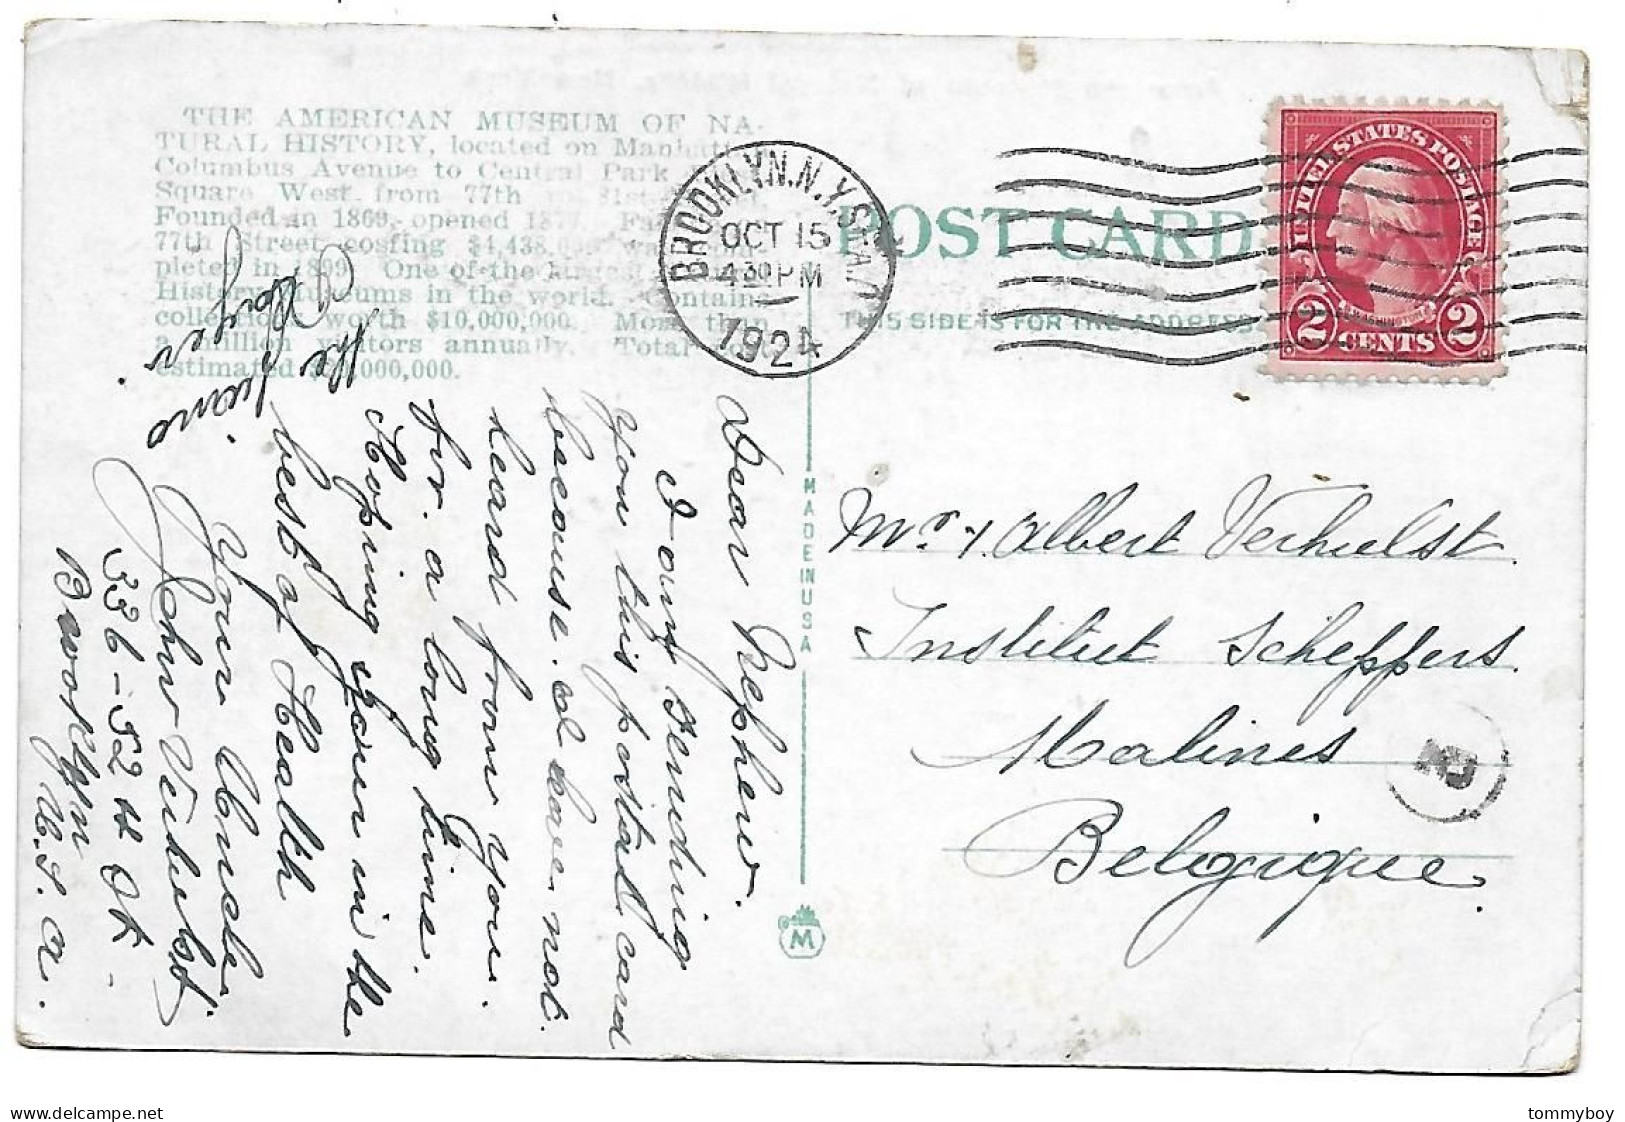 THE AMERICAN MUSEUM OF NA-
TURAL HISTORY, located on Manhatt
Columbus Avenue to Central Park
Square West, from 77th 81st
Founded in 1869, opened 1877.
77th Street costing $4,438,
pleted in 1899. One of the
History Museums in the world. Contains
collections worth $10,000,000. More than
a million visitors annually. Total
estimated 000,000.
BROOKLYN, N.Y. STA.
OCT 15
4 30 PM
1924
POST CARD
THIS SIDE IS FOR THE ADDRESS
UNITED STATES POSTAGE
WASHINGTON
2 CENTS 2
MADE IN USA
M
Dear Nephew.
I am sending
you this postall card
because. I have not.
heard from you.
for. a long time.
Hoping your in the
best of Health
Your Uncle.
John Verhulst.
336-52 St.
Brooklyn
U.S.a.
the
Mr. Albert Verhulst.
Institut Scheppers.
Malines
Belgique.
tommyboy
delcampe.net